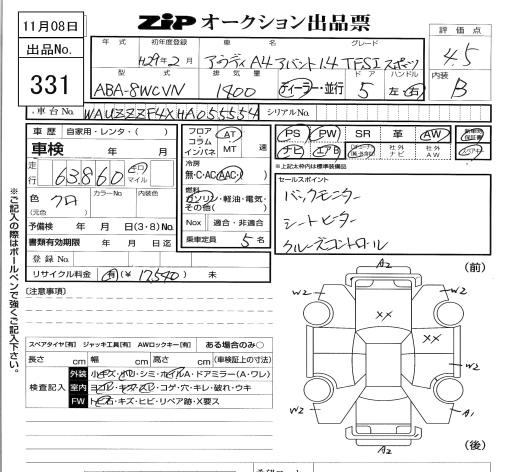 11月08日
ZIP オークション出品票
出品No.
331
評価点
4.5
内装
B
年式 初年度登録 車名 グレード
H29年2月 アウディ A4 アバント 1.4 TFSI スポーツ
型式 排気量 ドア ハンドル
ABA-8WCVN 1400 ディーラー・並行 5 左・右
車台No. WAUZZZF4XHA055554 シリアルNo.
車歴 自家用・レンタ・( )
車検 年 月
走行 63860 キロ
色 クロ カラーNo. 内装色
(元色)
予備検 年 月 日(3・8)No.
書類有効期限 年 月 日迄
登録No.
リサイクル料金 有(¥ 17,540 ) 未
フロア コラム インパネ AT MT 速
冷房
無・C・AC・AAC・
燃料
ガソリン・軽油・電気・その他( )
Nox 適合・非適合
乗車定員 5 名
PS PW SR 革 AW
ナビ エアB 社外ナビ 社外AW
*上記太枠内は標準装備品
セールスポイント
バックモニター
シートヒーター
クルーズコントロール
〔注意事項〕
※ご記入の際はボールペンで強くご記入下さい。
スペアタイヤ[有] ジャッキ工具[有] AWロックキー[有] ある場合のみ〇
長さ cm 幅 cm 高さ cm (車検証上の寸法)
検査記入
外装 小キズ・ボリ・シミ・ホイルA・ドアミラー(A・ワレ)
室内 ヨゴレ・キズ・スレ・コゲ・穴・キレ・破れ・ウキ
FW トビ石・キズ・ヒビ・リペア跡・X要ス
(前)
A2
W2 W2
XX
XX
W2
W2 A1
A2
(後)